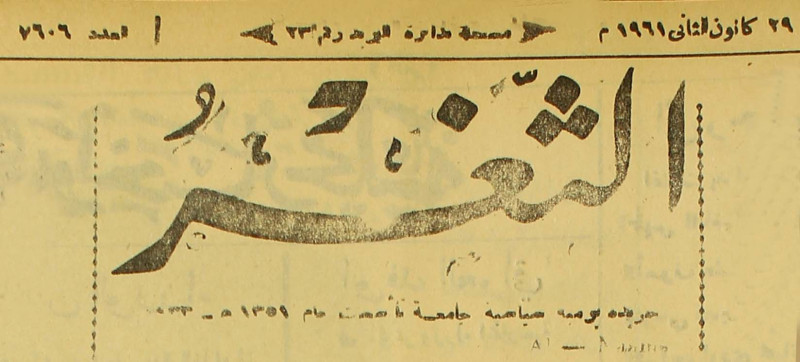 ٢٩ كانون الثاني ١٩٦١ م دائرة البريد رقم ٢٣ العدد ٧٦٠٦
الثَّغْرُ
جريدة يومية سياسية جامعة تأسست عام ١٣٥١ هـ